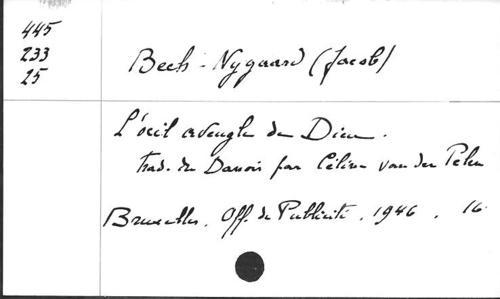 445
233
25
Bech-Nygaard (Jacob)
L'oeil aveugle de Dieu.
Trad. du Danois par Céline van der Pelen
Bruxelles, Off. de Publicité, 1946. 16